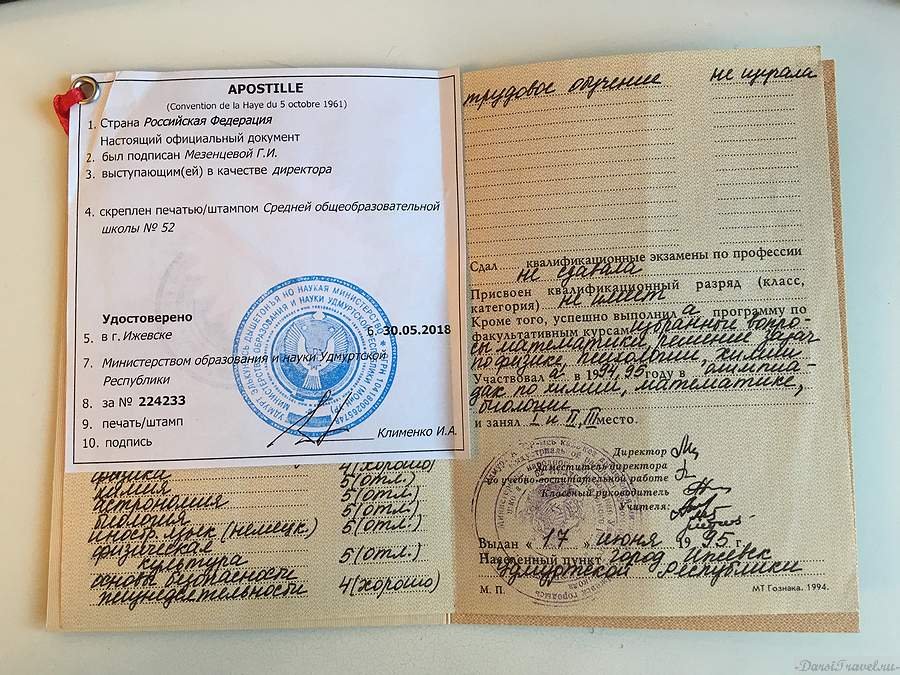 APOSTILLE
(Convention de la Haye du 5 octobre 1961)
1. Страна Российская Федерация
Настоящий официальный документ
2. был подписан Мезенцевой Г.И.
3. выступающим(ей) в качестве директора
4. скреплен печатью/штампом Средней общеобразовательной
школы № 52
Удостоверено
5. в г.Ижевске 6. 30.05.2018
7. Министерством образования и науки Удмуртской
Республики
8. за № 224233
9. печать/штамп
10. подпись Клименко И.А.
физика 4(хорошо)
химия 5(отл.)
астрономия 5(отл.)
биология 5(отл.)
иностр. язык (немецк.) 5(отл.)
физическая
культура 5(отл.)
основы безопасности
жизнедеятельности 4(хорошо)
трудовое обучение не изучала
Сдал квалификационные экзамены по профессии
не сдавала
Присвоен квалификационный разряд (класс,
категория) не имеет
Кроме того, успешно выполнил а программу по
факультативным курсам избранные вопро-
сы математики, решение задач
по физике, психологии, химии
Участвовал а в 1994, 95 году в олимпиа-
дах по химии, математике,
биологии
и занял I и II, III место.
Директор
Заместитель директора
по учебно-воспитательной работе
Классный руководитель
Учителя:
Выдан « 17 » июня 1995 г.
Населенный пункт город Ижевск
Удмуртской Республики
М. П.
МТ Гознака. 1994.
-DarsiTravel.ru-